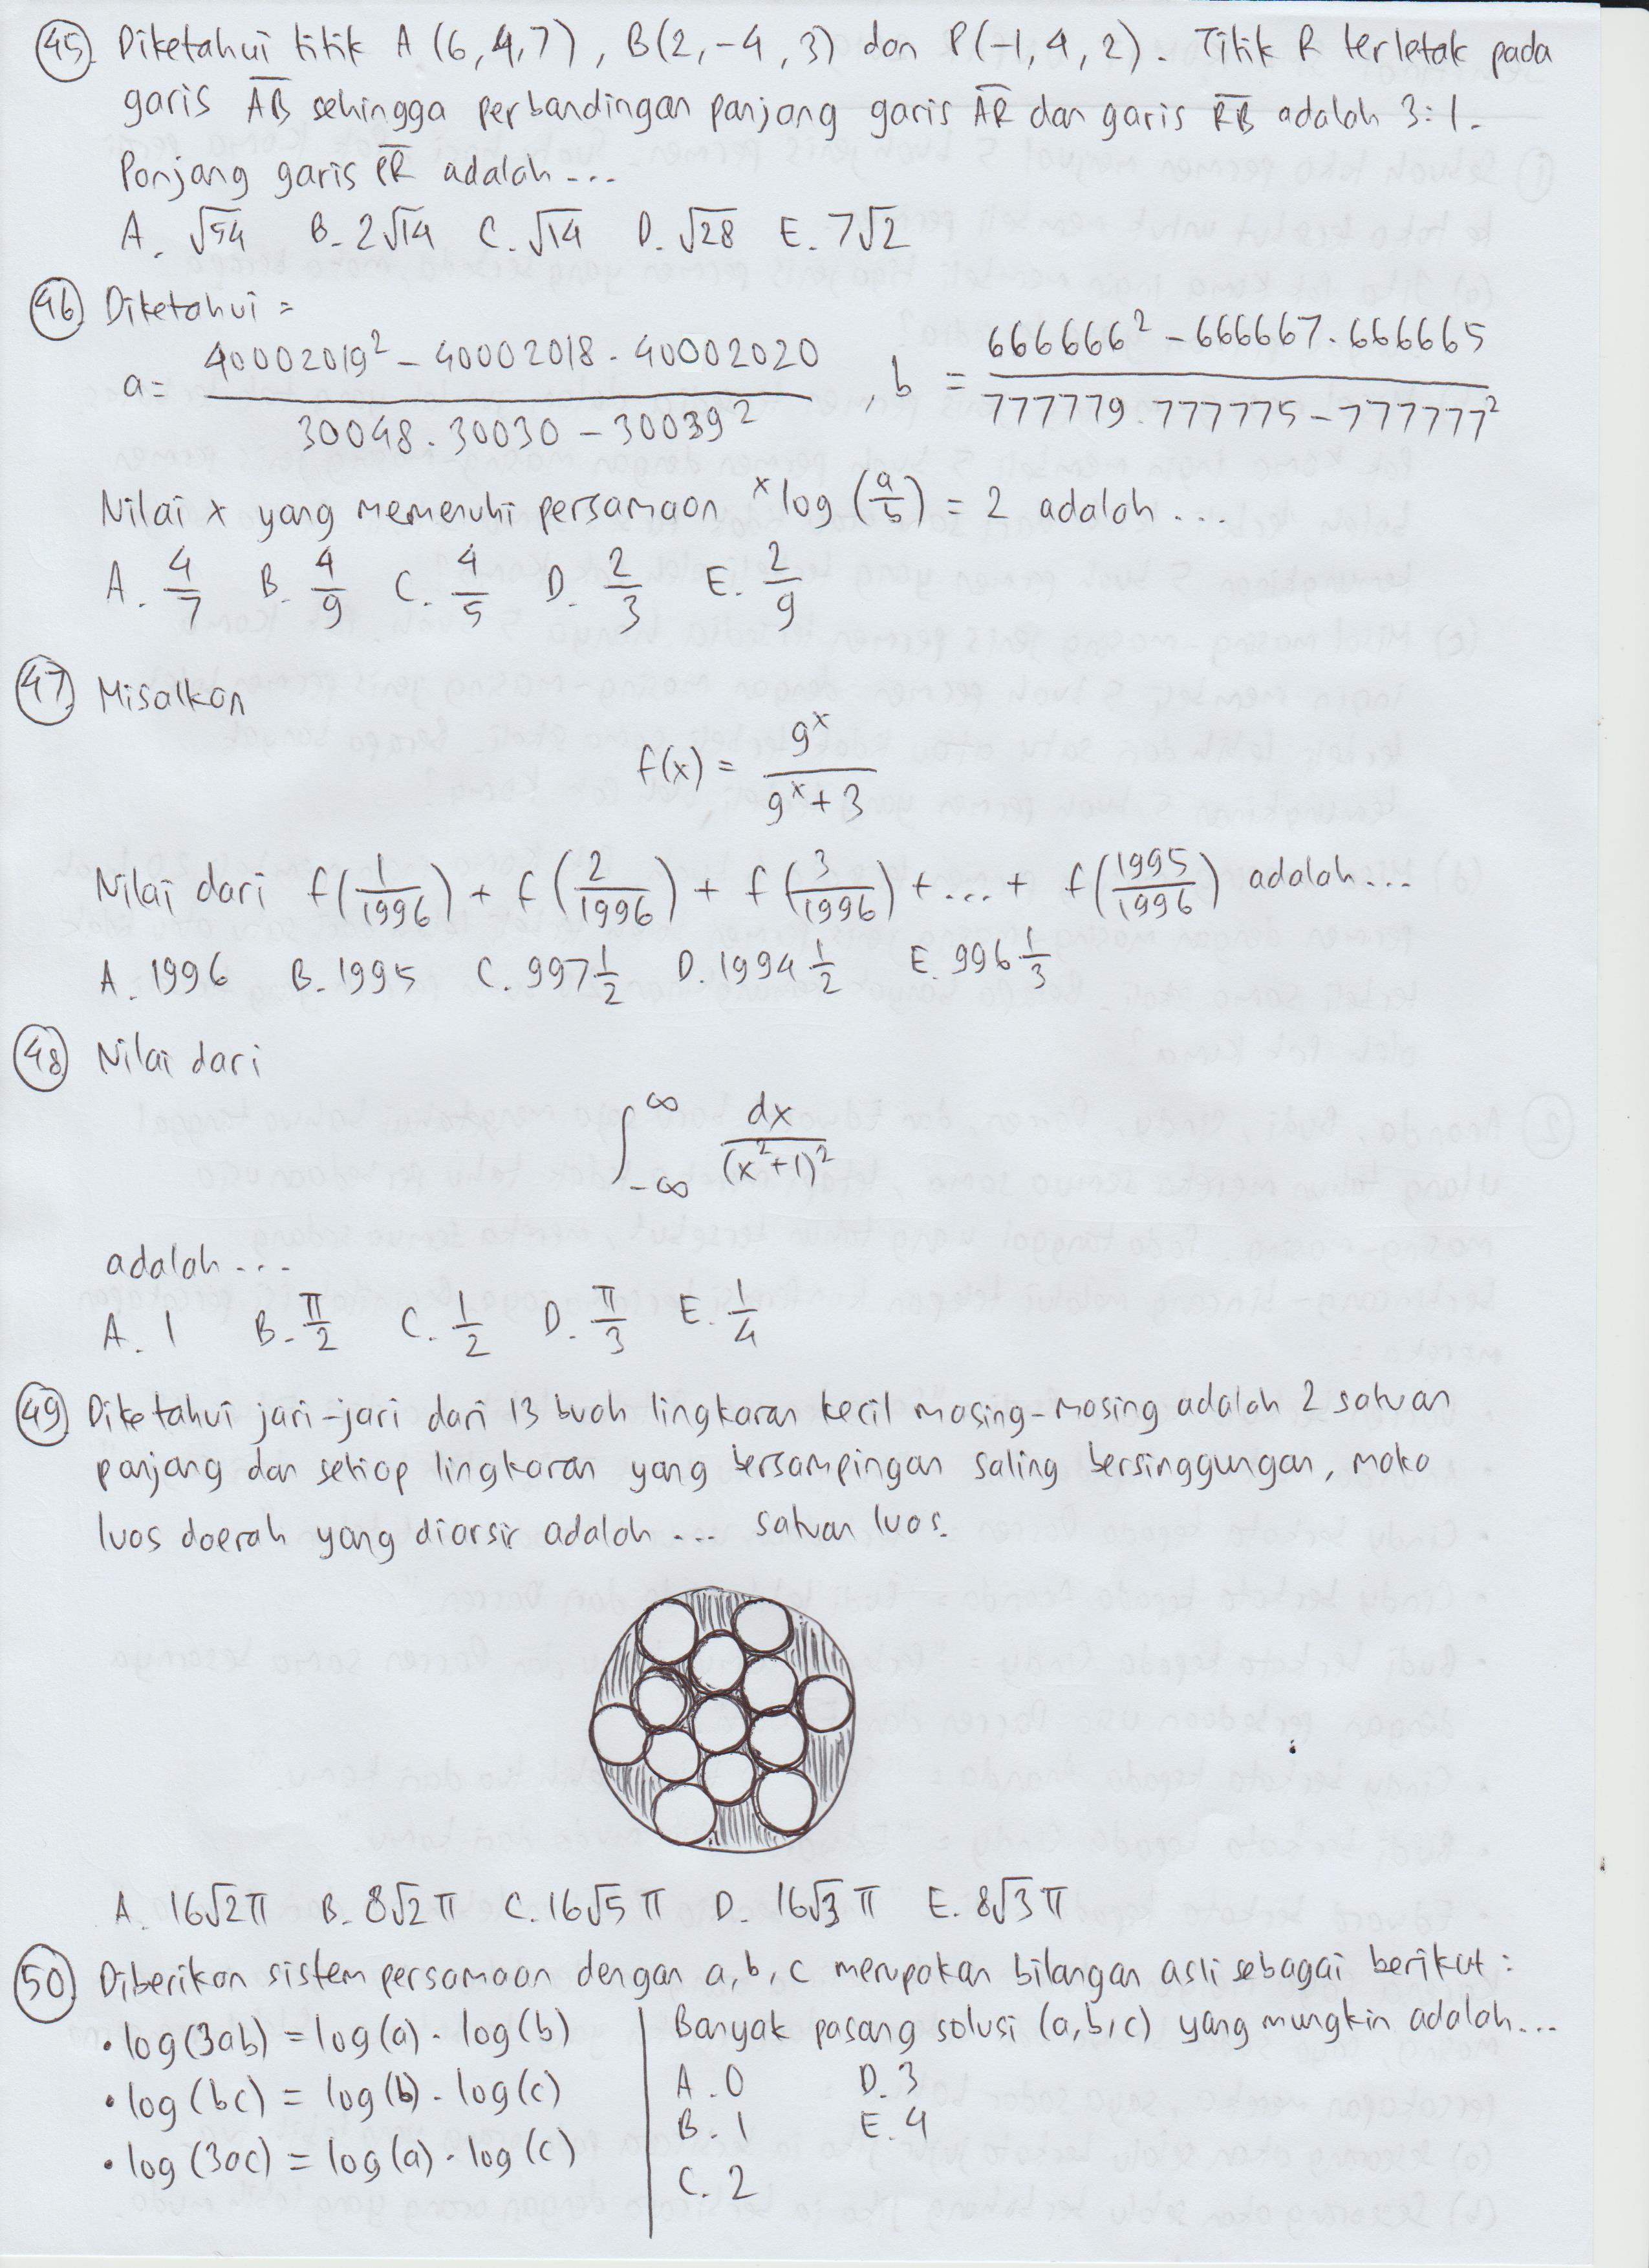 45. Diketahui titik A (6,4,7), B(2,-4,3) dan P(-1,4,2). Titik R terletak pada
garis A̅B̅ sehingga perbandingan panjang garis A̅R̅ dan garis R̅B̅ adalah 3:1.
Panjang garis P̅R̅ adalah ...
A. √54 B. 2√14 C. √14 D. √28 E. 7√2
46. Diketahui =
a = (40002019² - 40002018 . 40002020)/(30048 . 30030 - 30039²), b = (666666² - 666667 . 666665)/(777779 . 777775 - 777777²)
Nilai x yang memenuhi persamaan ˣlog (a/b) = 2 adalah ...
A. 4/7 B. 4/9 C. 4/5 D. 2/3 E. 2/9
47. Misalkan
f(x) = 9ˣ/(9ˣ + 3)
Nilai dari f(1/1996) + f(2/1996) + f(3/1996) + ... + f(1995/1996) adalah ...
A. 1996 B. 1995 C. 997 1/2 D. 1994 1/2 E. 996 1/3
48. Nilai dari
∫_{-∞}^{∞} dx/(x²+1)²
adalah ...
A. 1 B. π/2 C. 1/2 D. π/3 E. 1/4
49. Diketahui jari-jari dari 13 buah lingkaran kecil masing-masing adalah 2 satuan
panjang dan setiap lingkaran yang bersampingan saling bersinggungan, maka
luas daerah yang diarsir adalah ... satuan luas.
A. 16√2 π B. 8√2 π C. 16√5 π D. 16√3 π E. 8√3 π
50. Diberikan sistem persamaan dengan a, b, c merupakan bilangan asli sebagai berikut :
• log(3ab) = log(a) . log(b)
• log(bc) = log(b) . log(c)
• log(3ac) = log(a) . log(c)
Banyak pasang solusi (a,b,c) yang mungkin adalah ...
A. 0 D. 3
B. 1 E. 4
C. 2